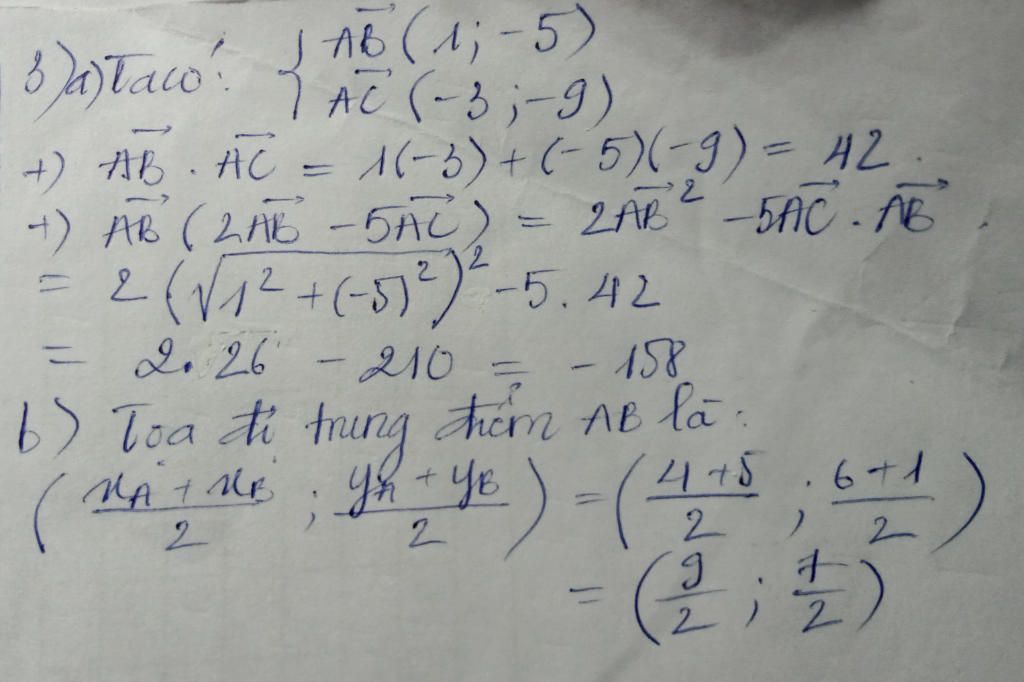 3) a) Ta có: { AB→ (1; -5)
AC→ (-3; -9)
+) AB→ . AC→ = 1(-3) + (-5)(-9) = 42.
+) AB→ (2AB→ - 5AC→) = 2AB→² - 5AC→ . AB→.
= 2 (√(1² + (-5)²))² - 5. 42
= 2. 26 - 210 = - 158
b) Tọa đi trung điểm AB là:
((xA + xB)/2 ; (yA + yB)/2) = ((4 + 5)/2 ; (6 + 1)/2)
= (9/2 ; 7/2)